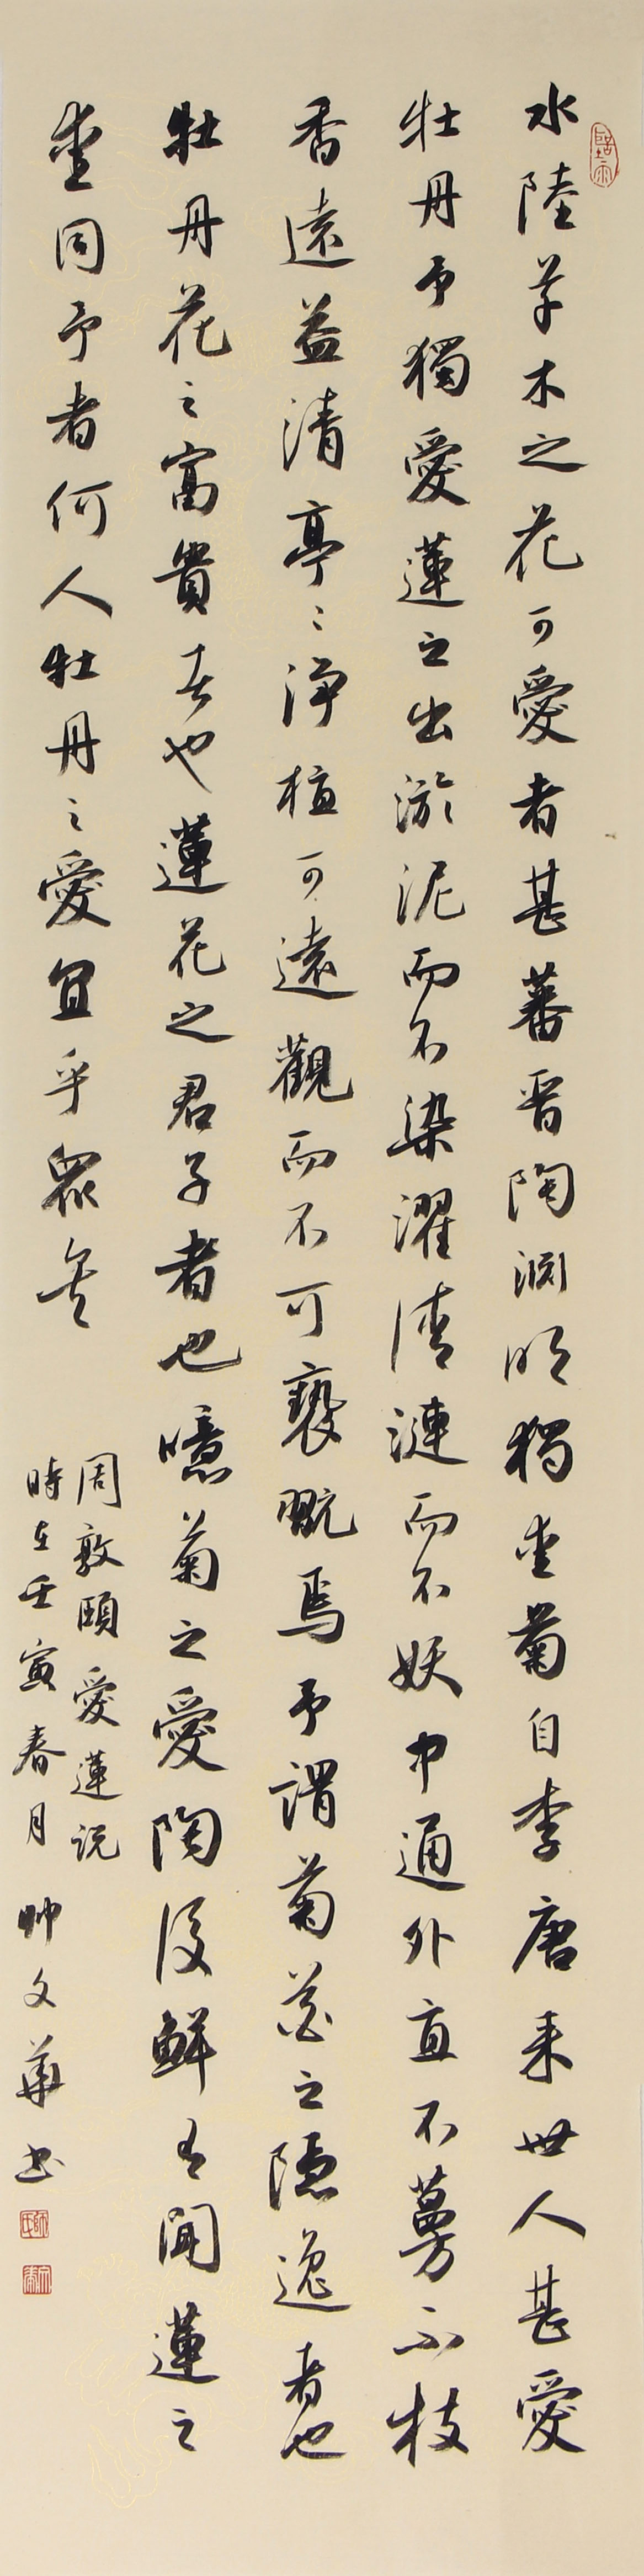 水陸草木之花可愛者甚蕃晋陶淵明獨愛菊自李唐来世人甚愛
牡丹予獨愛蓮之出淤泥而不染濯清漣而不妖中通外直不蔓不枝
香遠益清亭〻淨植可遠觀而不可褻翫焉予謂菊花之隱逸者也
牡丹花之富貴者也蓮花之君子者也噫菊之愛陶後鮮有聞蓮之
愛同予者何人牡丹之愛宜乎眾矣
周敦頤愛蓮説
時在壬寅春月帥文華書